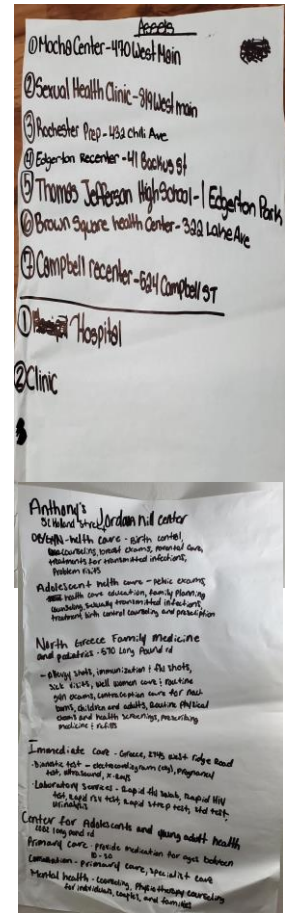 Assets
① Mocha Center - 470 West Main
② Sexual Health Clinic - 919 West main
③ Rochester Prep - 432 Chili Ave
④ Edgerton Recenter - 41 Backus St
⑤ Thomas Jefferson HighSchool - 1 Edgerton Park
⑥ Brown Square health Center - 322 Lake Ave
⑦ Campbell recenter - 524 Campbell ST
① Hospital
② Clinic
Anthony's Jordan hill center
82 Holland Street
OB/GYN - helth care - Birth contol,
counseling, breast exams, prenatal care,
treatments for transmitted infections,
Problem visits
Adolescent helth care - pelvic exams
health care education, family planning
counseling sexually transmitted infections,
treatment birth control counseling and presciption
North Greece Family Medicine
and pediatrics - 570 Long Pound rd
- allergy shots, immunization & flu shots,
sick visits, well women care & routine
gyn exams, contraception care for
borns, children and adults, Routine physical
exams and health screenings, prescribing
medicine & refills
Immediate care - Greece, 2745 West Ridge Road
test - electrocardiogram (ekg), pregnancy
test, ultrasound, x-rays
· Laboratory services - Rapid flu swab, Rapid HIV
test, Rapid rsv test, Rapid strep test, std test,
urinalysis
Center for Adolescents and young adult health
long pound rd
Primary care - provide medication for ages between
10 - 30
- primary care, specialist care
Mental health - counseling, Physiotherapy counseling
for individuals, couples, and families